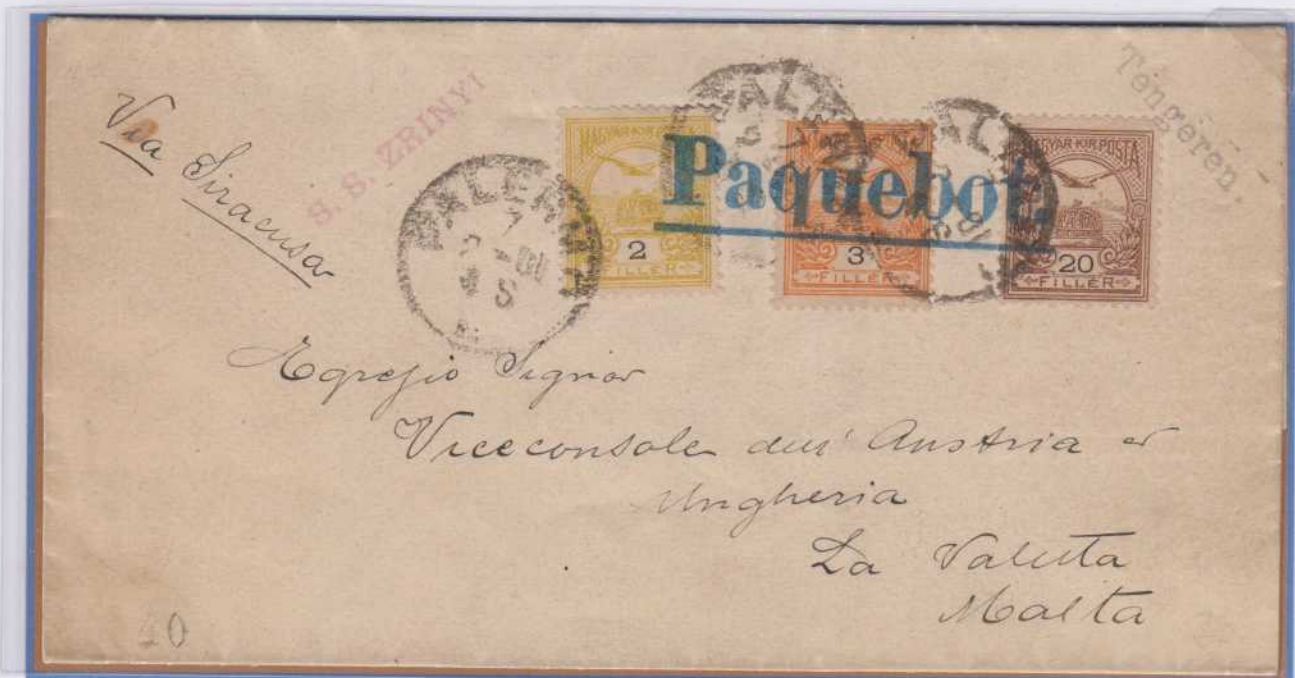 Via Siracusa
S. S. ZRINYI
Tengeren.
Paquebot.
MAGYAR·KIR·POSTA
2
FILLÉR
3
FILLÉR
MAGYAR·KIR·POSTA
20
FILLÉR
PALERMO
PALE
PALE
Egregio Signor
Viceconsole dell' Austria e
Ungheria
La Valetta
Malta
40